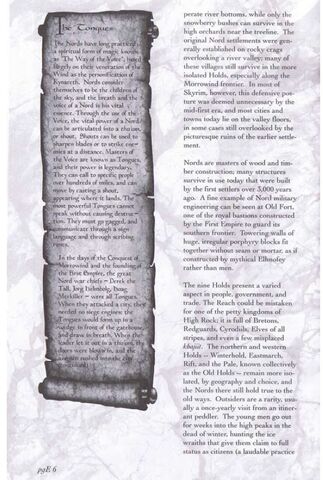 The Tongues
The Nords have long practiced
a spiritual form of magic known
as "The Way of the Voice", based
largely on their veneration of the
Wind as the personification of
Kynareth. Nords consider
themselves to be the children of
the sky, and the breath and the
voice of a Nord is his vital
essence. Through the use of the
Voice, the vital power of a Nord
can be articulated into a thu'um,
or shout. Shouts can be used to
sharpen blades or to strike ene-
mies at a distance. Masters of
the Voice are known as Tongues,
and their power is legendary.
They can call to specific people
over hundreds of miles, and can
move by casting a shout,
appearing where it lands. The
most powerful Tongues cannot
speak without causing destruc-
tion. They must go gagged, and
communicate through a sign
language and through scribing
runes.
In the days of the Conquest of
Morrowind and the founding of
the First Empire, the great
Nord war chiefs -- Derek the
Tall, Jorg Helmbolg, Hoag
Merkiller -- were all Tongues.
When they attacked a city, they
needed no siege engines; the
Tongues would form up in a
wedge in front of the gatehouse,
and draw in breath. When the
leader let it out in a thu'um, the
doors were blown in, and the
axemen rushed into the city.
pgE 6
perate river bottoms, while only the
snowberry bushes can survive in the
high orchards near the treeline. The
original Nord settlements were gen-
erally established on rocky crags
overlooking a river valley; many of
these villages still survive in the more
isolated Holds, especially along the
Morrowind frontier. In most of
Skyrim, however, this defensive pos-
ture was deemed unnecessary by the
mid-first era, and most cities and
towns today lie on the valley floors,
in some cases still overlooked by the
picturesque ruins of the earlier settle-
ment.
Nords are masters of wood and tim-
ber construction; many structures
survive in use today that were built
by the first settlers over 3,000 years
ago. A fine example of Nord military
engineering can be seen at Old Fort,
one of the royal bastions constructed
by the First Empire to guard its
southern frontier. Towering walls of
huge, irregular porphyry blocks fit
together without seam or mortar, as if
constructed by mythical Ehlnofey
rather than men.
The nine Holds present a varied
aspect in people, government, and
trade. The Reach could be mistaken
for one of the petty kingdoms of
High Rock; it is full of Bretons,
Redguards, Cyrodiils, Elves of all
stripes, and even a few misplaced
khajiit. The northern and western
Holds -- Winterhold, Eastmarch,
Rift, and the Pale, known collectively
as the Old Holds -- remain more iso-
lated, by geography and choice, and
the Nords there still hold true to the
old ways. Outsiders are a rarity, usu-
ally a once-yearly visit from an itiner-
ant peddler. The young men go out
for weeks into the high peaks in the
dead of winter, hunting the ice
wraiths that give them claim to full
status as citizens (a laudable practice